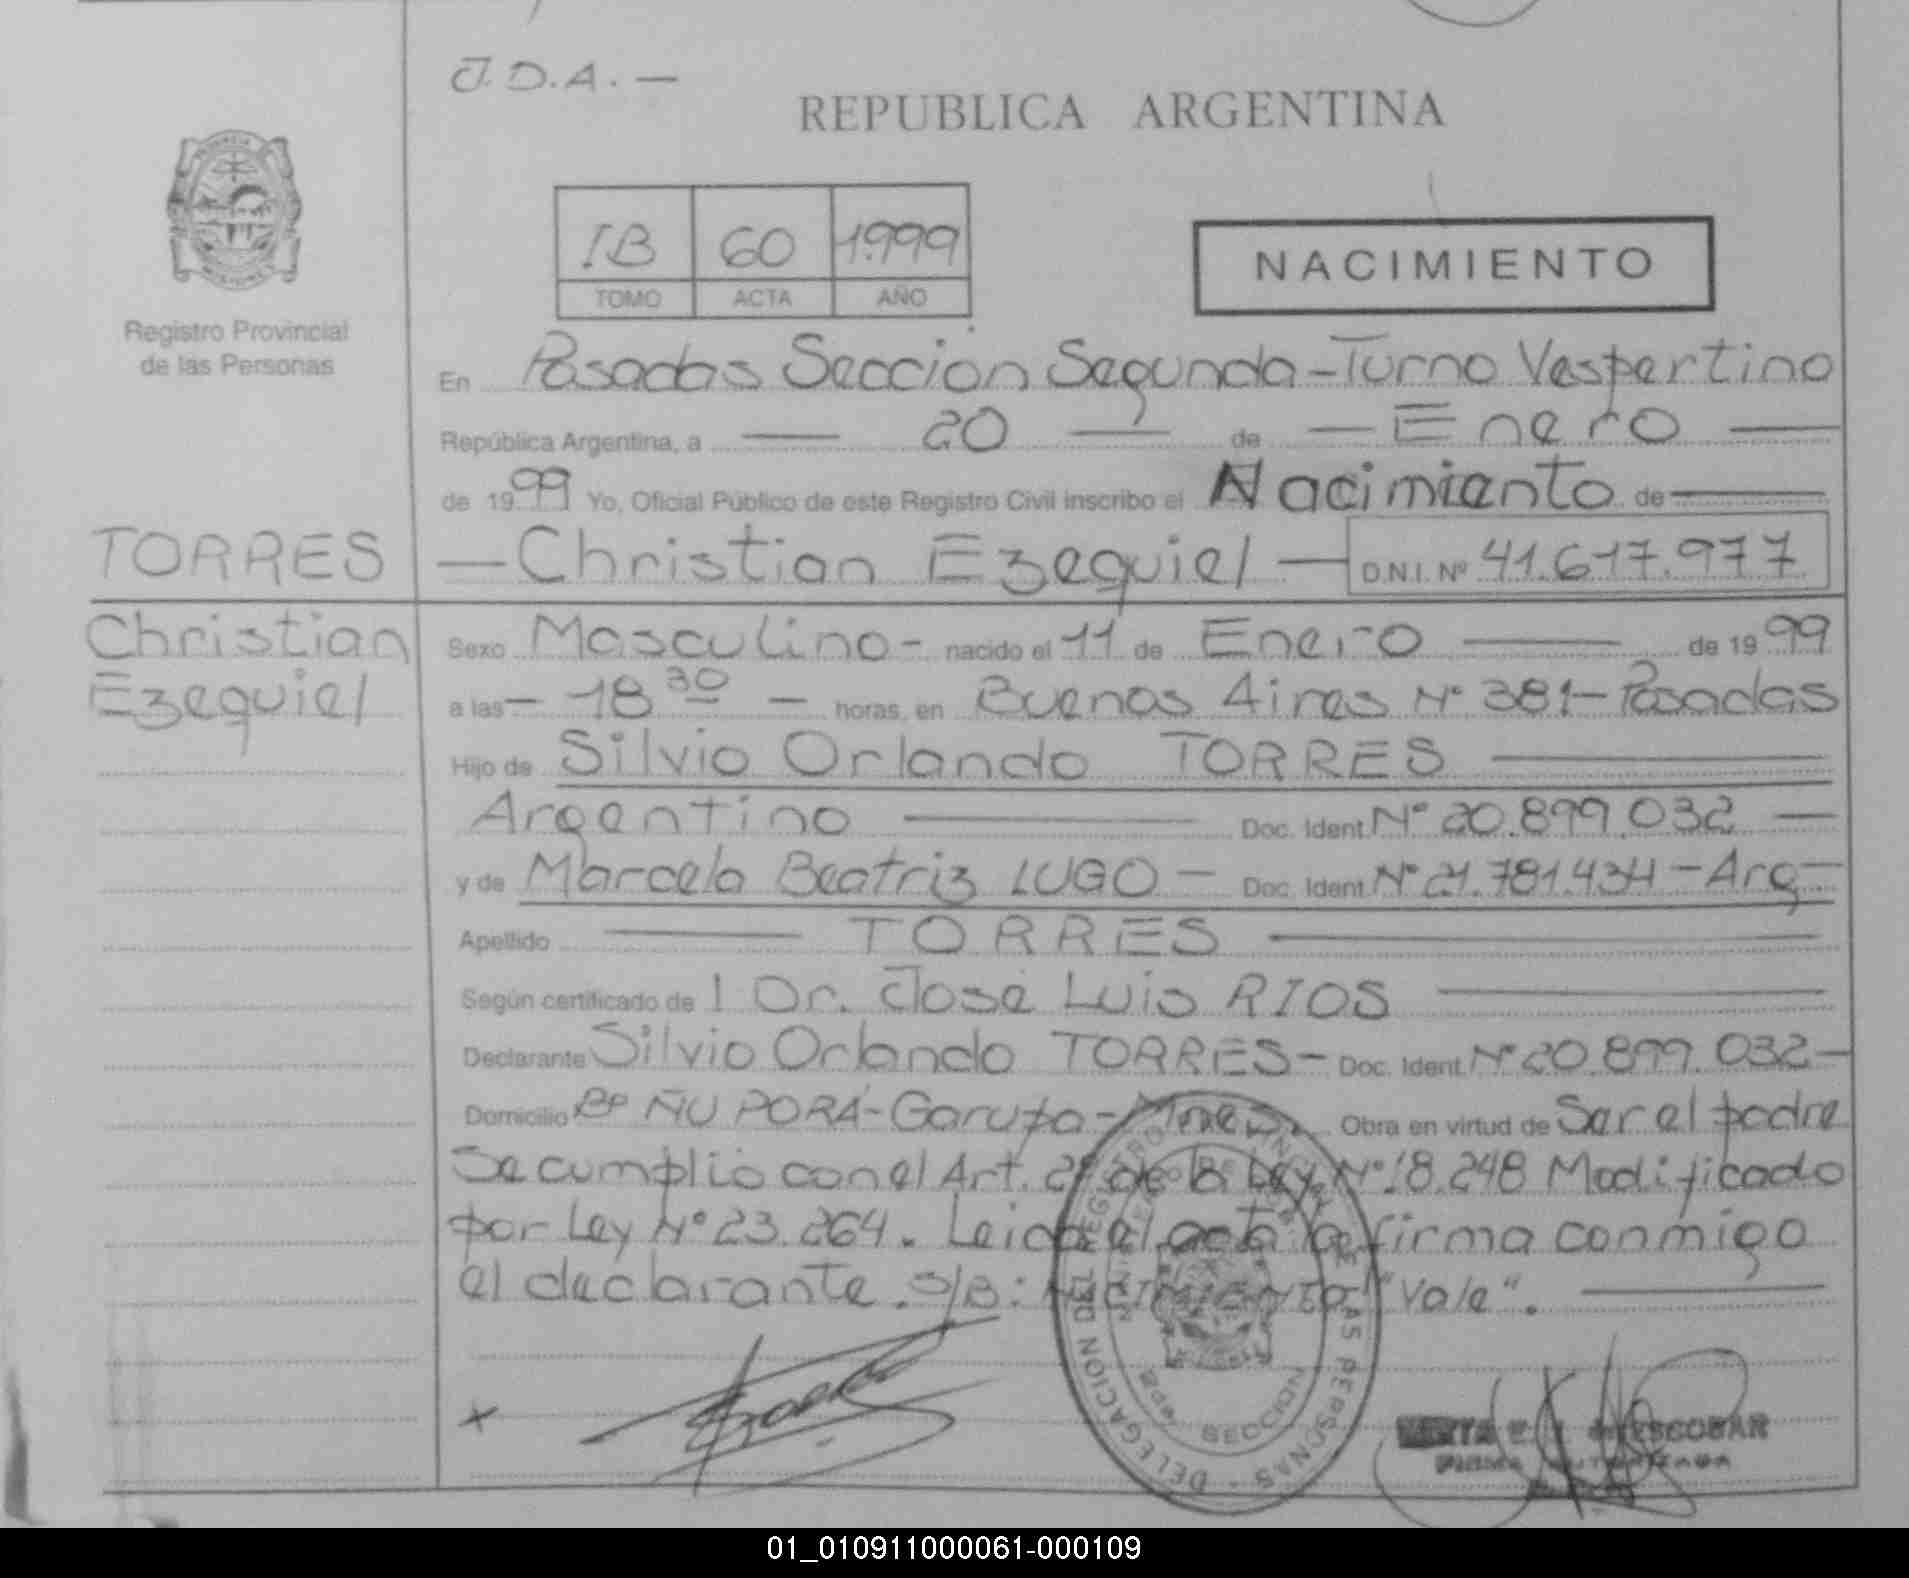 J.D.A. —
REPUBLICA ARGENTINA
IB 60 1999
TOMO ACTA AÑO
NACIMIENTO
Registro Provincial
de las Personas
En Posadas Sección Segunda - Turno Vespertino
República Argentina, a — 20 — de — Enero —
de 1999 Yo, Oficial Público de este Registro Civil inscribo el Nacimiento de —
TORRES
— Christian Ezequiel — D.N.I. Nº 41.617.977
Christian
Ezequiel
Sexo Masculino - nacido el 11 de Enero — de 1999
a las — 18 30 — horas, en Buenos Aires Nº 381 - Posadas
Hijo de Silvio Orlando TORRES —
Argentino — Doc. Ident. Nº 20.899.032 —
y de Marcela Beatriz LUGO — Doc. Ident. Nº 21.781.434 - Arg —
Apellido — TORRES —
Según certificado de l Dr. José Luis RIOS —
Declarante Silvio Orlando TORRES - Doc. Ident. Nº 20.899.032 -
Domicilio Bº ÑU PORÁ - Garupa - Mnes. Obra en virtud de Ser el padre
Se cumplio con el Art. 2º de la Ley Nº 18.248 Modificado
por Ley Nº 23.264. Leida el acta la firma conmigo
el declarante. S/B: Nacimiento "Vale". —
x
DELEGACION DEL REGISTRO PROVINCIAL DE LAS PERSONAS
SECCION
ESCOBAR
01_010911000061-000109